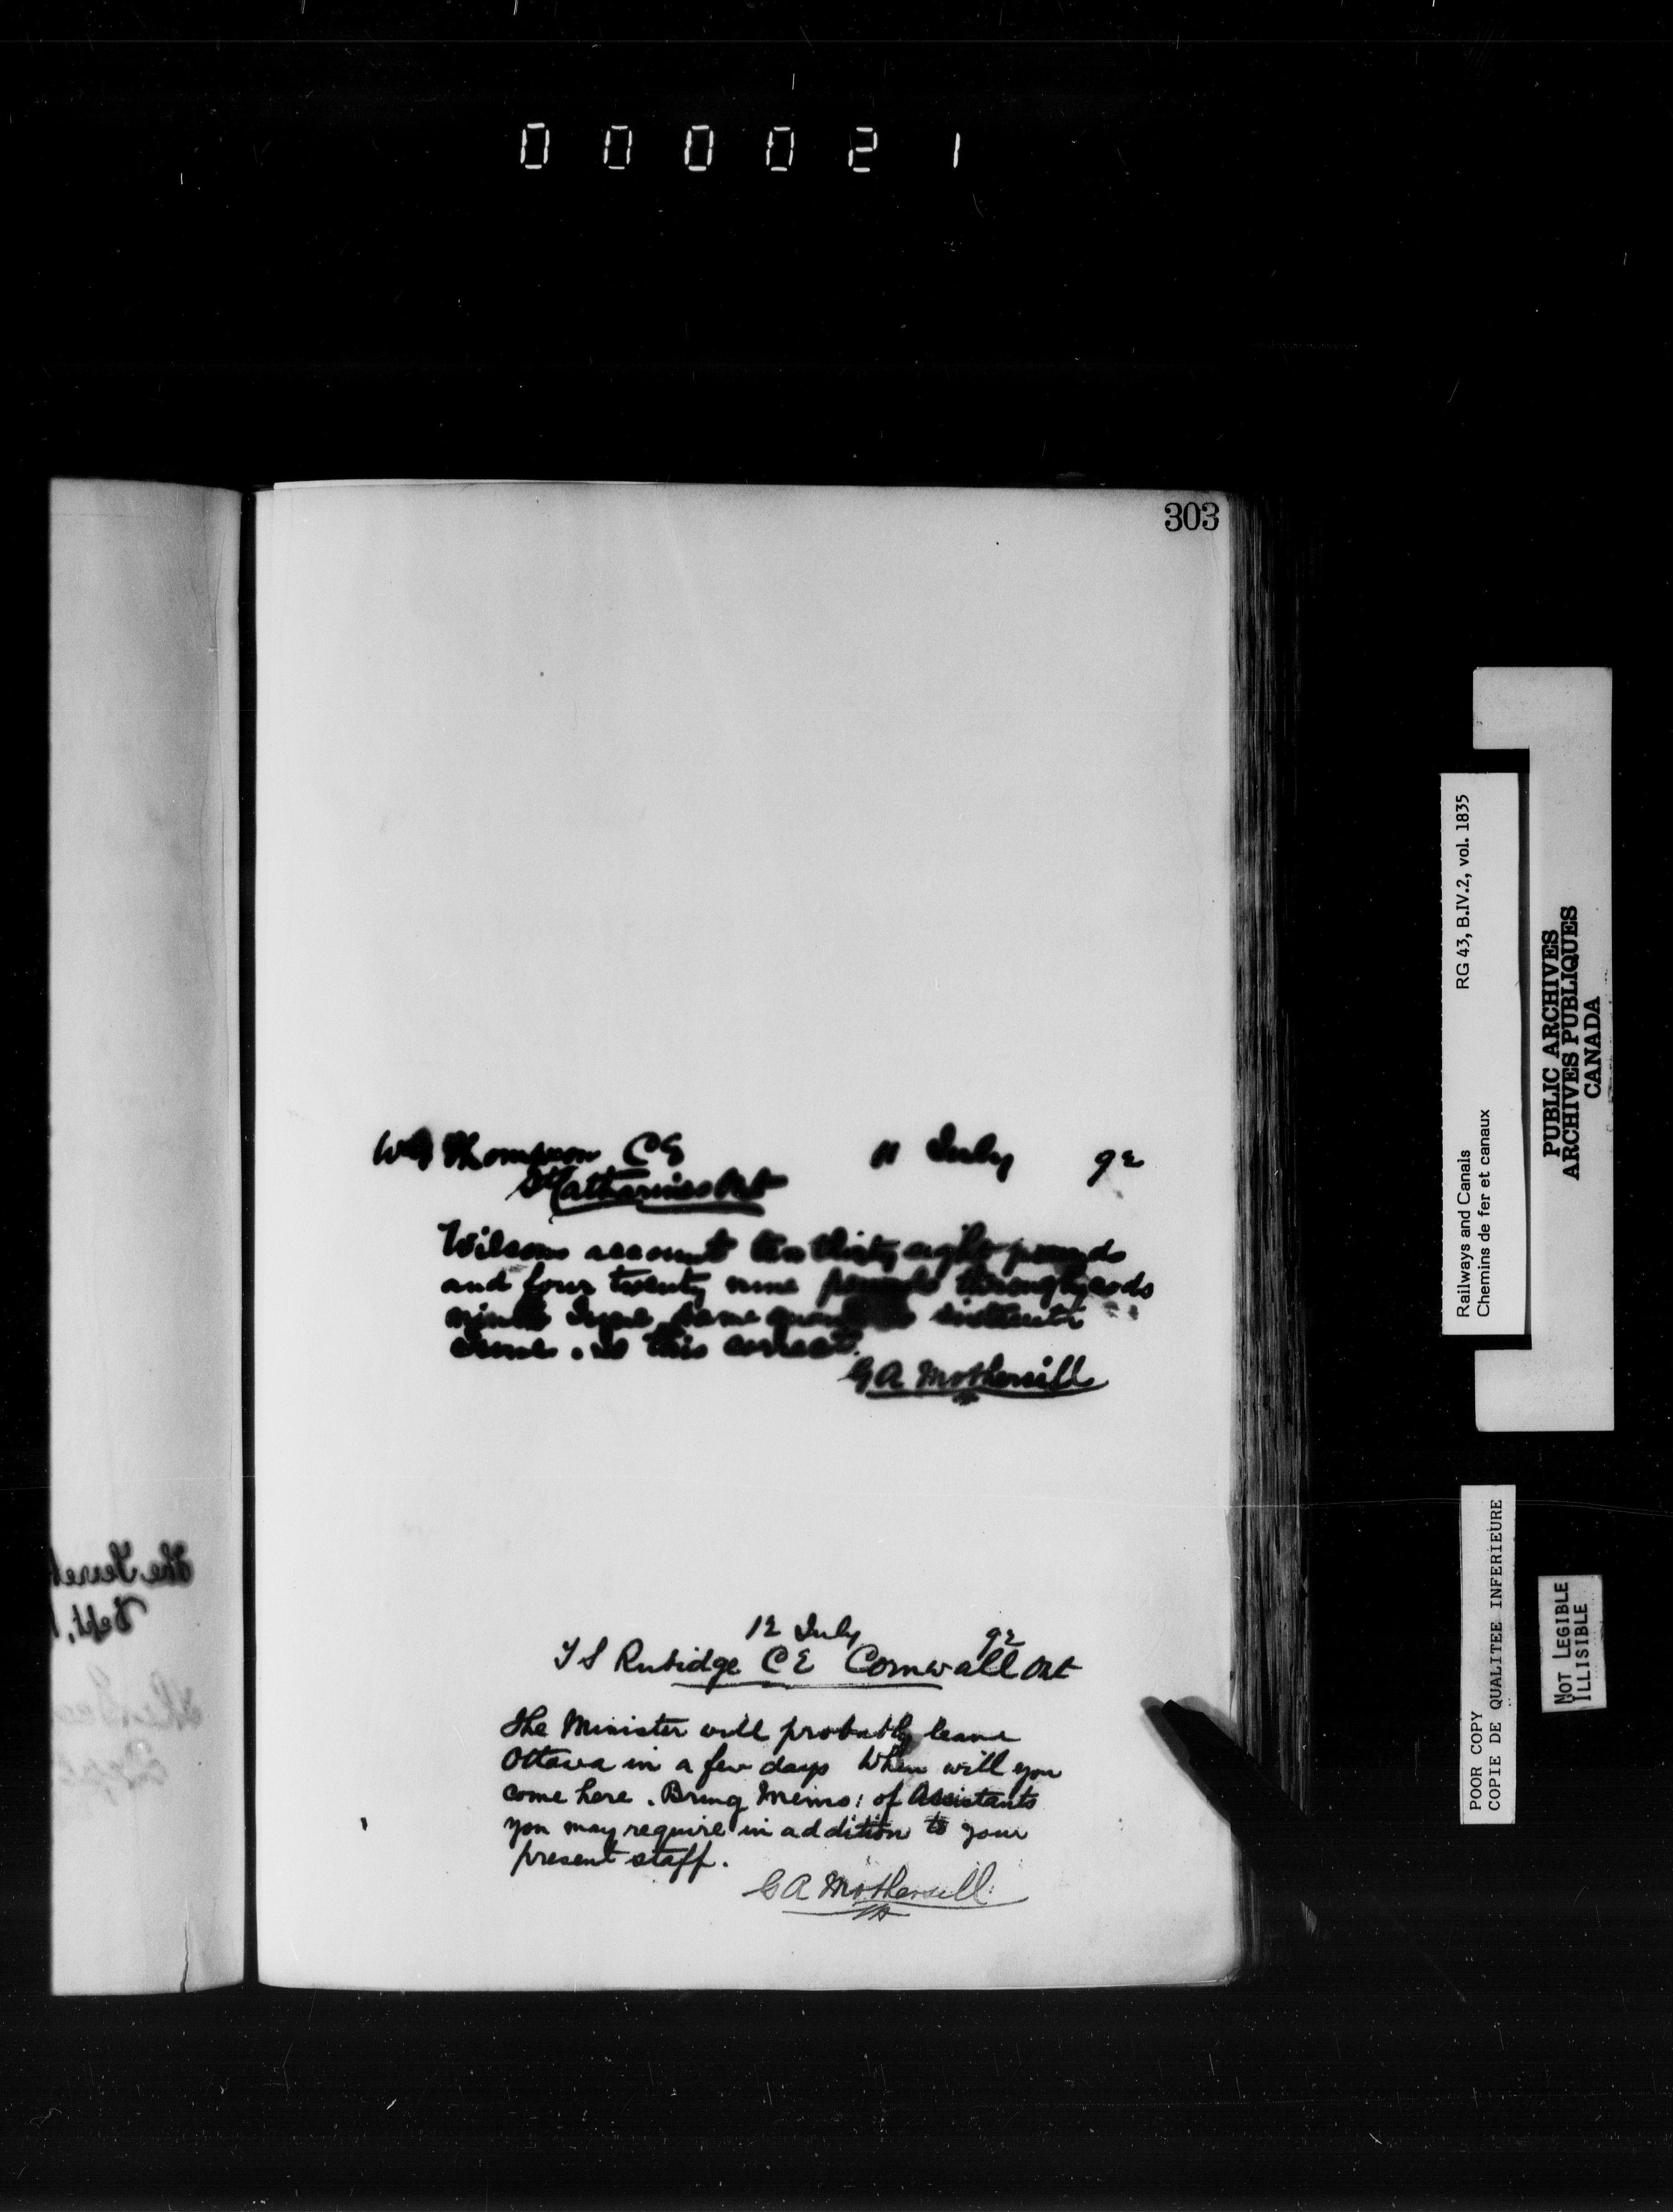 000021
303
WG Thompson CE 11 July 92
St Catharines Ont
Wilsons account ten thirty eight pounds
and four twenty nine
same
June. Is this correct.
GA Mothersill
12 July 92
T S Rubidge CE Cornwall Ont
The Minister will probably leave
Ottawa in a few days When will you
come here. Bring Memo: of Assistants
you may require in addition to your
present staff.
GA Mothersill
Railways and Canals RG 43, B.IV.2, vol. 1835
Chemins de fer et canaux
PUBLIC ARCHIVES
ARCHIVES PUBLIQUES
CANADA
POOR COPY
COPIE DE QUALITEE INFERIEURE
NOT LEGIBLE
ILLISIBLE